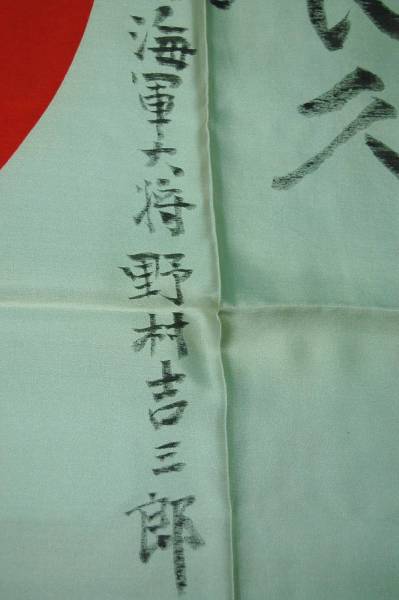 久
海軍大将 野村吉三郎